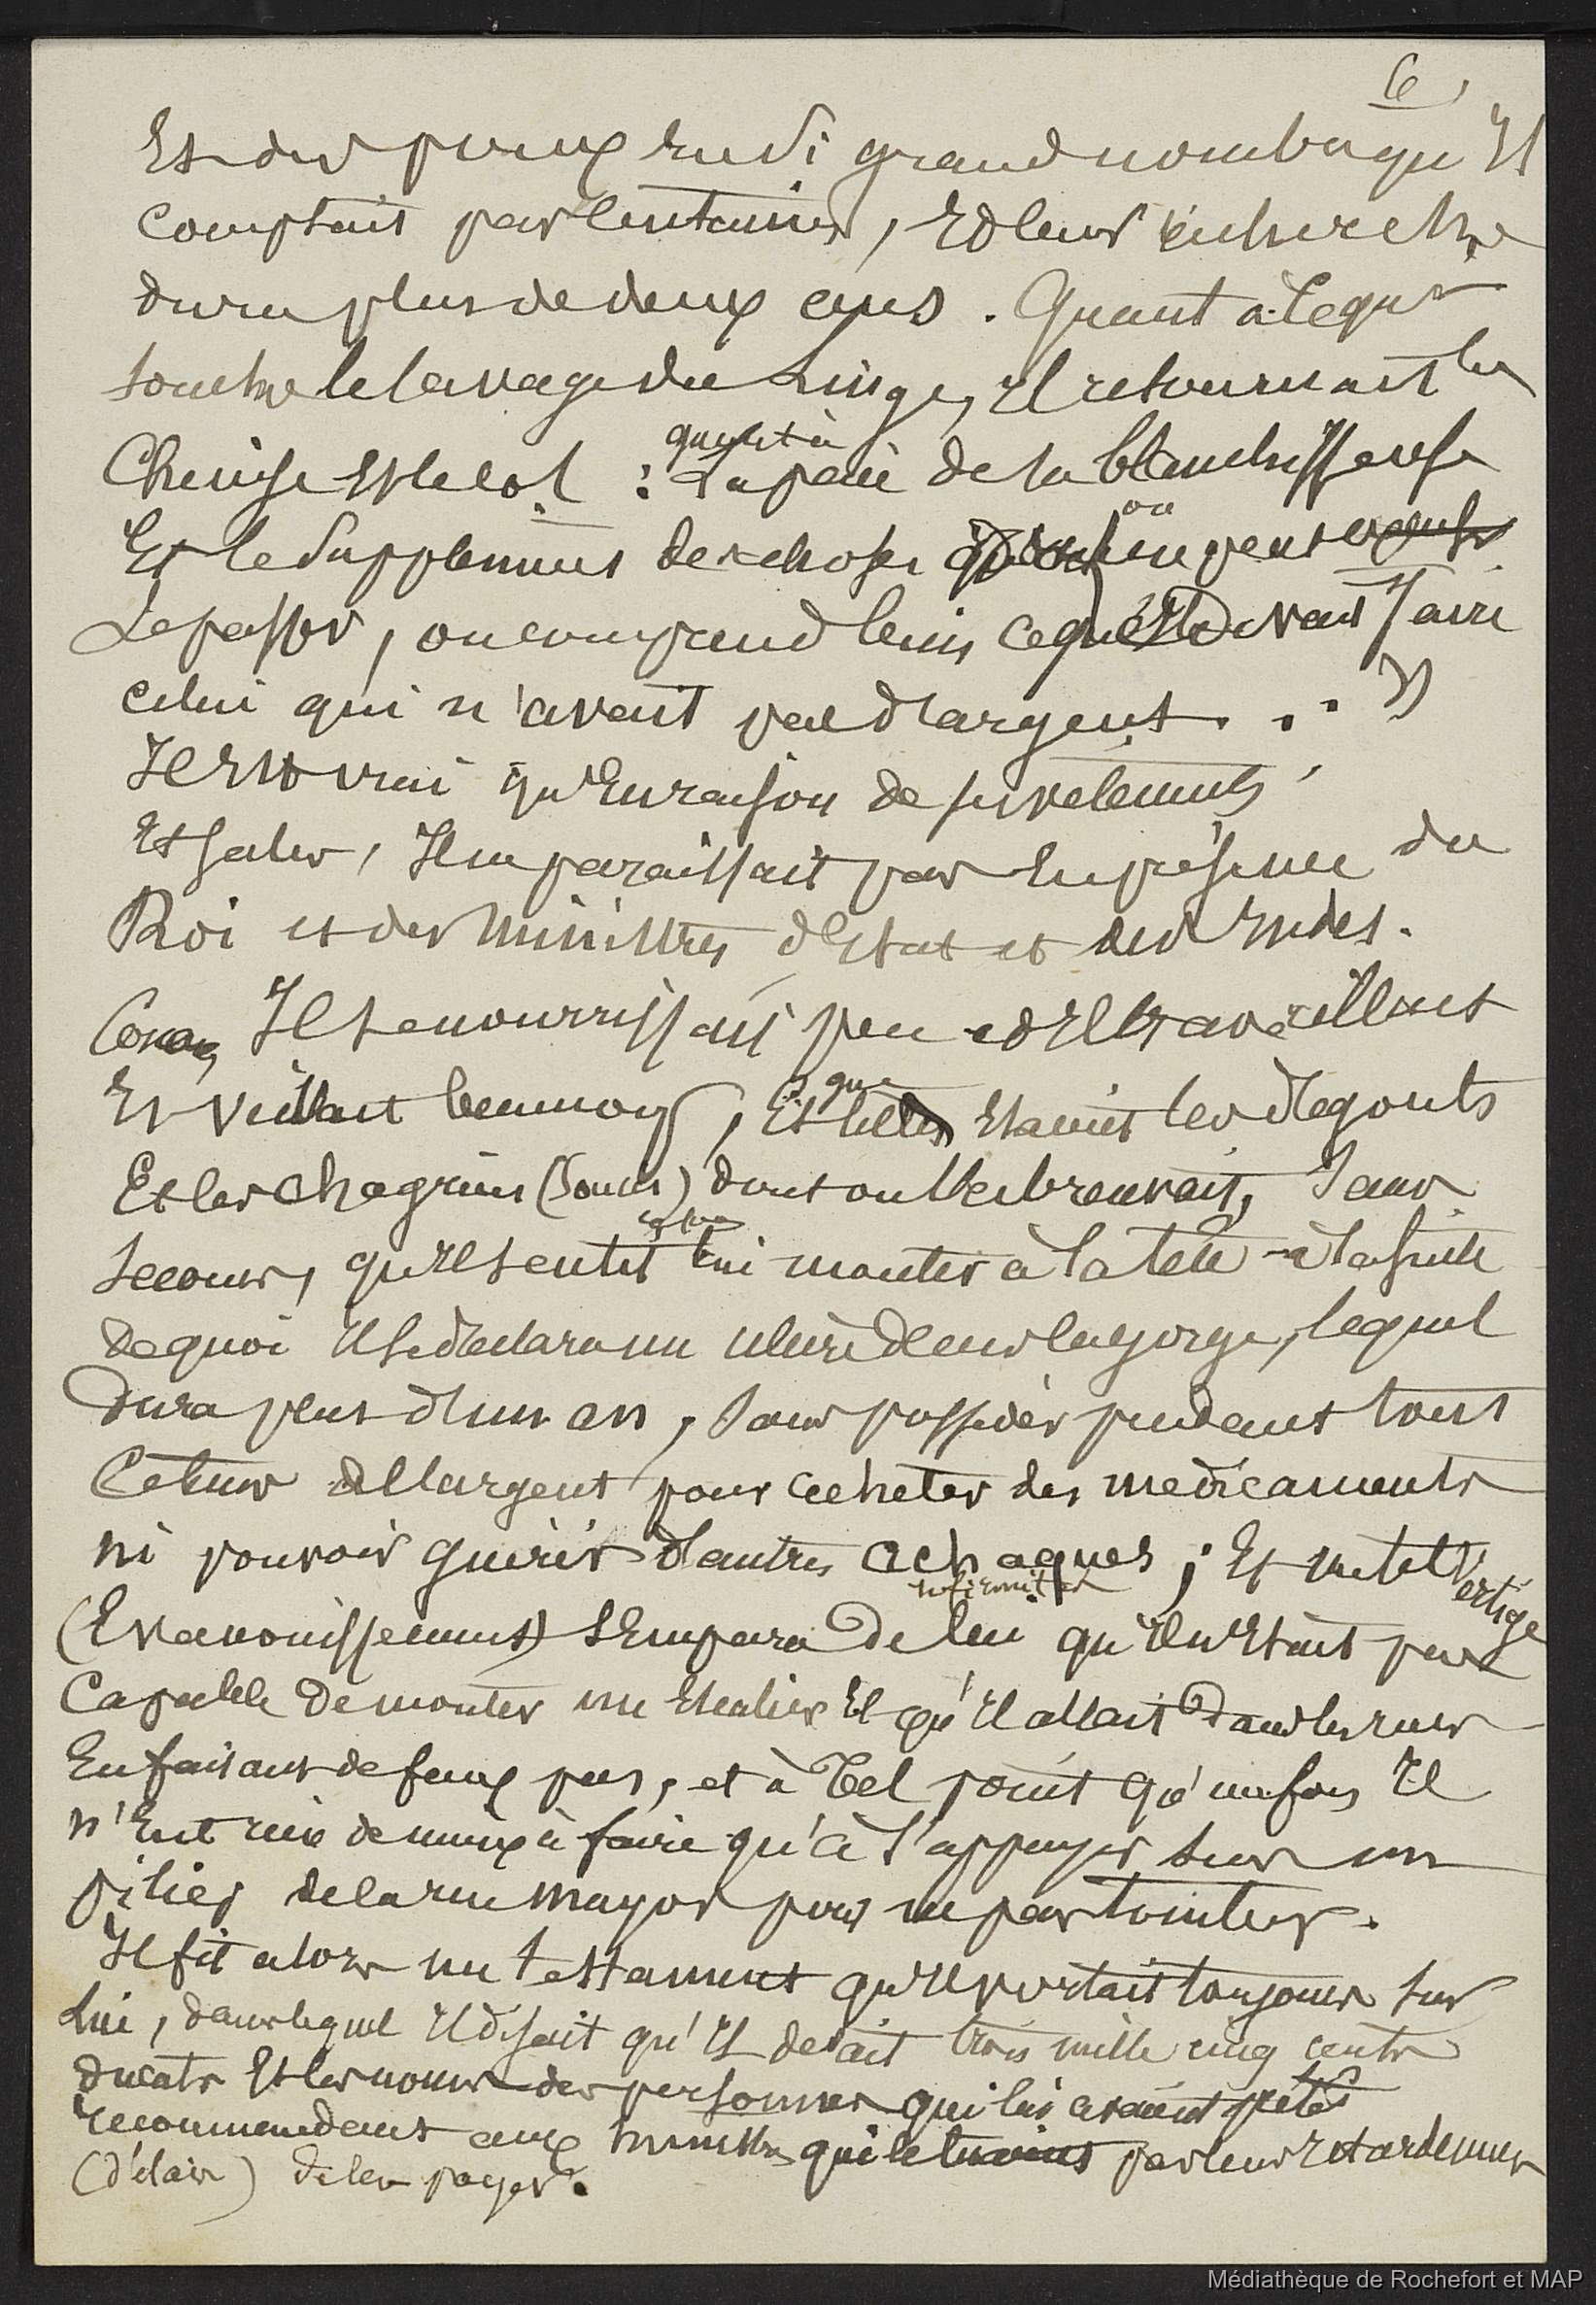 6
Et des poux en si grand nombre qu'il
comptait par centaines, et leur recherche
dura plus de deux ans. Quant à ce qui
touche le lavage du linge, il retournait la
Chemise et le col : quant à la paie de la blanchisseuse
Et le supplement des choses dont on ne peut
se passer, on comprend bien ce que devait faire
celui qui n'avait pas d'argent . . . »
Il est vrai qu'en raison de ses vetements
Et sales, Il ne paraissait pas en présence du
Roi et des ministres d'Etat et des Indes.
Il se nourrissait peu et il travaillait
Et veillait beaucoup, Et que tels etaient les degouts
Et les chagrins (soucis) dont on l'abreuvait, sans
secours, qu'il sentit lui monter à la tête à la suite
de quoi il se declara un ulcère dans la gorge, lequel
dura plus d'un an, sans posseder pendant tout
ce tems de l'argent pour acheter des medicaments
ni pouvoir guérir d'autres achaques infirmités ; Et un tel vertige
(Evanouissement) s'empara de lui qu'il n'etait pas
Capable de monter un escalier Et qu'il allait dans les rues
En faisant de faux pas, et à tel point qu'une fois Il
n'eut rien de mieux à faire qu'à s'appuyer sur un
pilier de la rue mayor pour ne pas tomber.
Il fit alors un testament qu'il portait toujours sur
Lui, dans lequel il disait qu'il devait trois mille cinq cents
ducats Et les noms des personnes qui les avaient prêtés
recommandant aux ministres qui le tuaient par leur retardement
(délais) de les payer.
Médiathèque de Rochefort et MAP